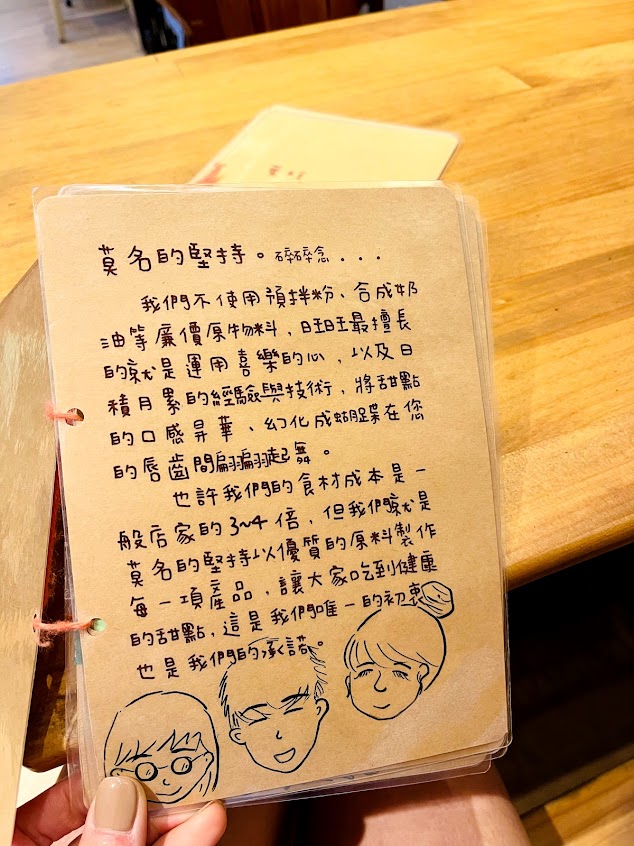 莫名的堅持。碎碎念...
我們不使用預拌粉、合成奶
油等廉價原物料，旺旺最擅長
的就是運用喜樂的心，以及日
積月累的經驗與技術，將甜點
的口感昇華、幻化成蝴蝶在您
的唇齒間翩翩起舞。
也許我們的食材成本是一
般店家的3~4倍，但我們就是
莫名的堅持以優質的原料製作
每一項產品，讓大家吃到健康
的甜點，這是我們唯一的初衷
也是我們的承諾。